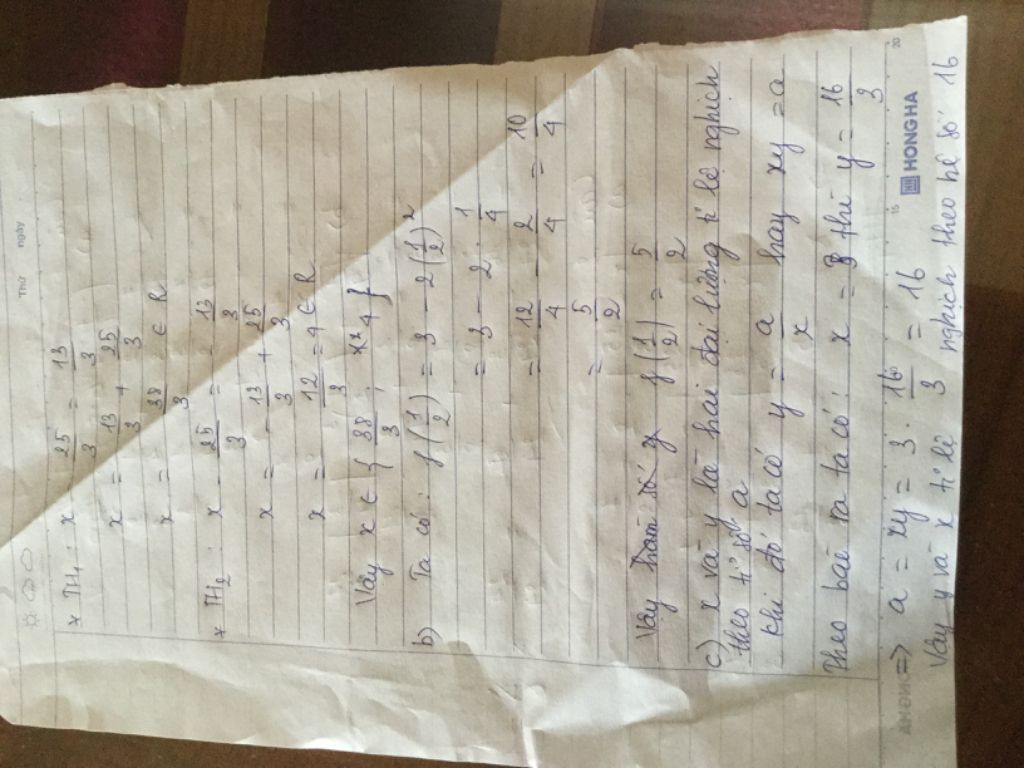 Thứ ngày
* TH₁: x - 25/3 = 13/3
x = 13/3 + 25/3
x = 38/3 ∈ R
* TH₂: x - 25/3 = - 13/3
x = - 13/3 + 25/3
x = 12/3 = 4 ∈ R
Vậy x ∈ { 38/3 ; 4 }
b) Ta có: f(1/2) = 3 - 2(1/2)²
= 3 - 2 . 1/4
= 12/4 - 2/4 = 10/4
= 5/2
Vậy f(1/2) = 5/2
c) x và y là hai đại lượng tỉ lệ nghịch
theo tỉ số a
khi đó ta có y = a/x hay xy = a
Theo bài ra ta có: x = 3 thì y = 16/3
=> a = xy = 3 . 16/3 = 16
Vậy y và x tỉ lệ nghịch theo hệ số 16
15 20
HONG HA